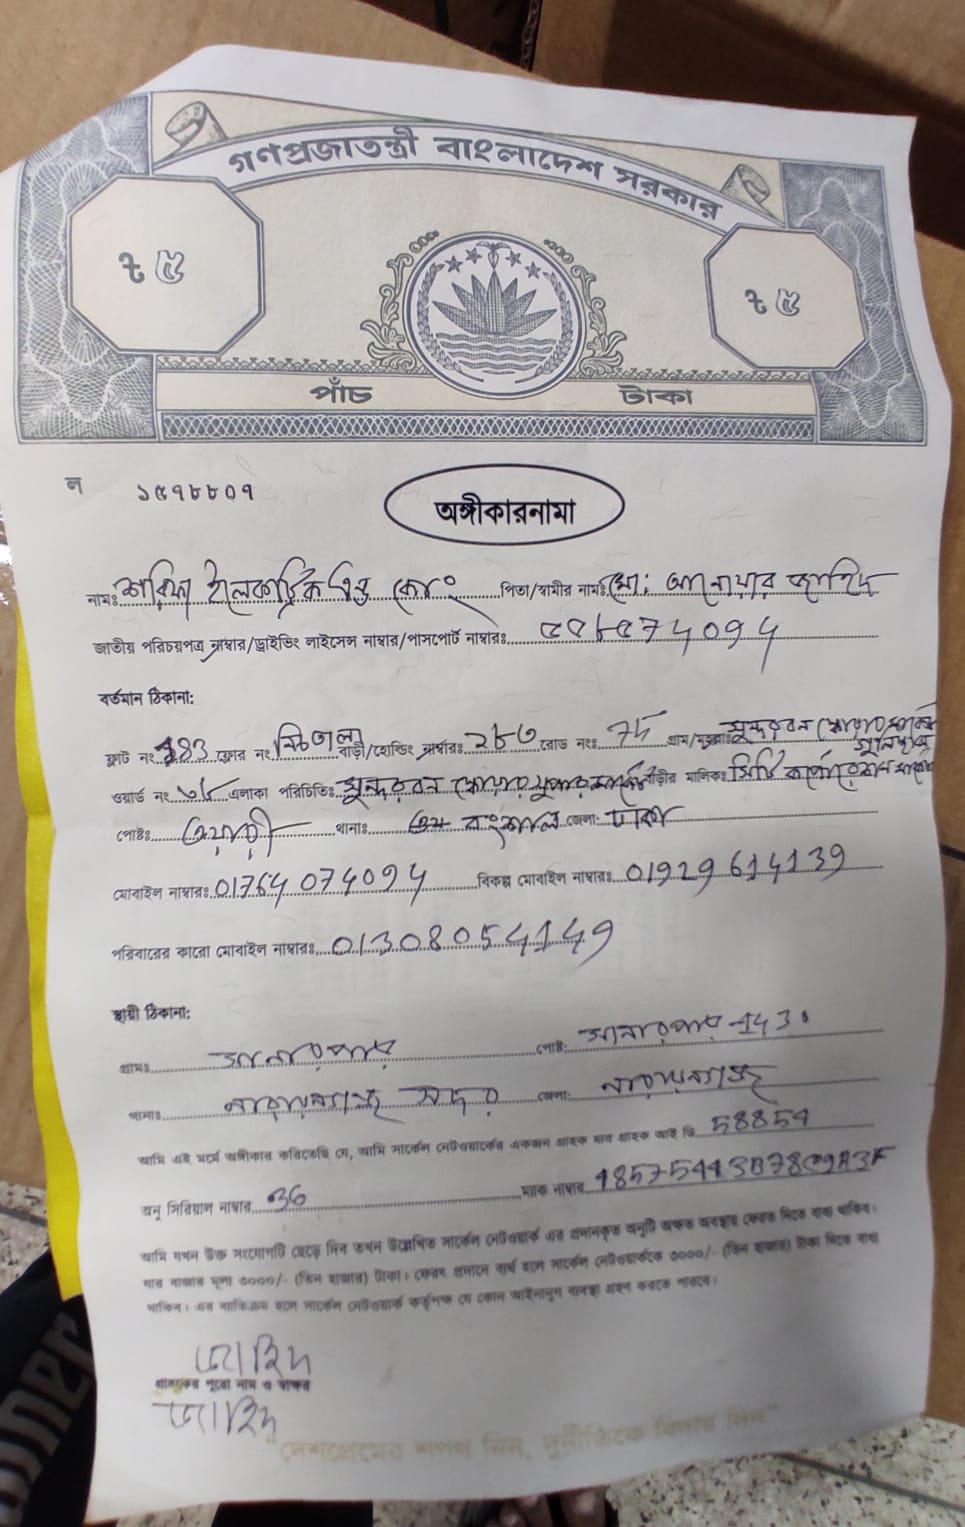 গণপ্রজাতন্ত্রী বাংলাদেশ সরকার
৳ ৫
৳ ৫
পাঁচ টাকা
ল ১৫৭৮৮০৭
অঙ্গীকারনামা
নামঃ ইলেকট্রিক এন্ড কোং পিতা/স্বামীর নামঃ মো: আনোয়ার জাহিদ
জাতীয় পরিচয়পত্র নাম্বার/ড্রাইভিং লাইসেন্স নাম্বার/পাসপোর্ট নাম্বারঃ
বর্তমান ঠিকানা:
ফ্লাট নং ফ্লোর নং বাড়ী/হোল্ডিং নাম্বারঃ ২৮৩ রোড নংঃ গ্রাম/মহল্লাঃ সুন্দরবন স্কোয়ার মার্কেট
ওয়ার্ড নং এলাকা পরিচিতিঃ সুন্দরবন স্কোয়ার সুপার মার্কেট বাড়ীর মালিকঃ সিটি কর্পোরেশন মার্কেট
পোষ্টঃ থানাঃ বংশাল জেলা: ঢাকা
মোবাইল নাম্বারঃ 01764074094 বিকল্প মোবাইল নাম্বারঃ 01929614139
পরিবারের কারো মোবাইল নাম্বারঃ 01308054149
স্থায়ী ঠিকানা:
গ্রামঃ সানারপাড় পোষ্ট: সানারপাড় -1430
থানাঃ নারায়নগঞ্জ সদর জেলা: নারায়নগঞ্জ
আমি এই মর্মে অঙ্গীকার করিতেছি যে, আমি সার্কেল নেটওয়ার্কের একজন গ্রাহক যার গ্রাহক আই ডি 58854
অনু সিরিয়াল নাম্বার 36 ম্যাক নাম্বার
আমি যখন উক্ত সংযোগটি ছেড়ে দিব তখন উল্লেখিত সার্কেল নেটওয়ার্ক এর প্রদানকৃত অনুটি অক্ষত অবস্থায় ফেরত দিতে বাধ্য থাকিব।
যার বাজার মূল্য ৩০০০/- (তিন হাজার) টাকা। ফেরৎ প্রদানে ব্যর্থ হলে সার্কেল নেটওয়ার্ককে ৩০০০/- (তিন হাজার) টাকা দিতে বাধ্য
থাকিব। এর ব্যতিক্রম হলে সার্কেল নেটওয়ার্ক কর্তৃপক্ষ যে কোন আইনানুগ ব্যবস্থা গ্রহন করতে পারবে।
জাহিদ
গ্রাহকের পুরো নাম ও স্বাক্ষর
জাহিদ
"দেশপ্রেমের শপথ নিন, দুর্নীতিকে বিদায় দিন"